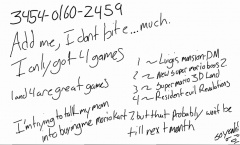 3454-0160-2459
Add me, I dont bite...much.
I only got 4 games
1 and 4 are great games
1 ~ Luigis mansion DM
2 ~ new super mario bros 2
3 ~ Super mario 3D Land
4 ~ Resident evil Revelations
I'm trying to talk my mom
into buying me mario Kart 7 but that Probably wont be
till next month